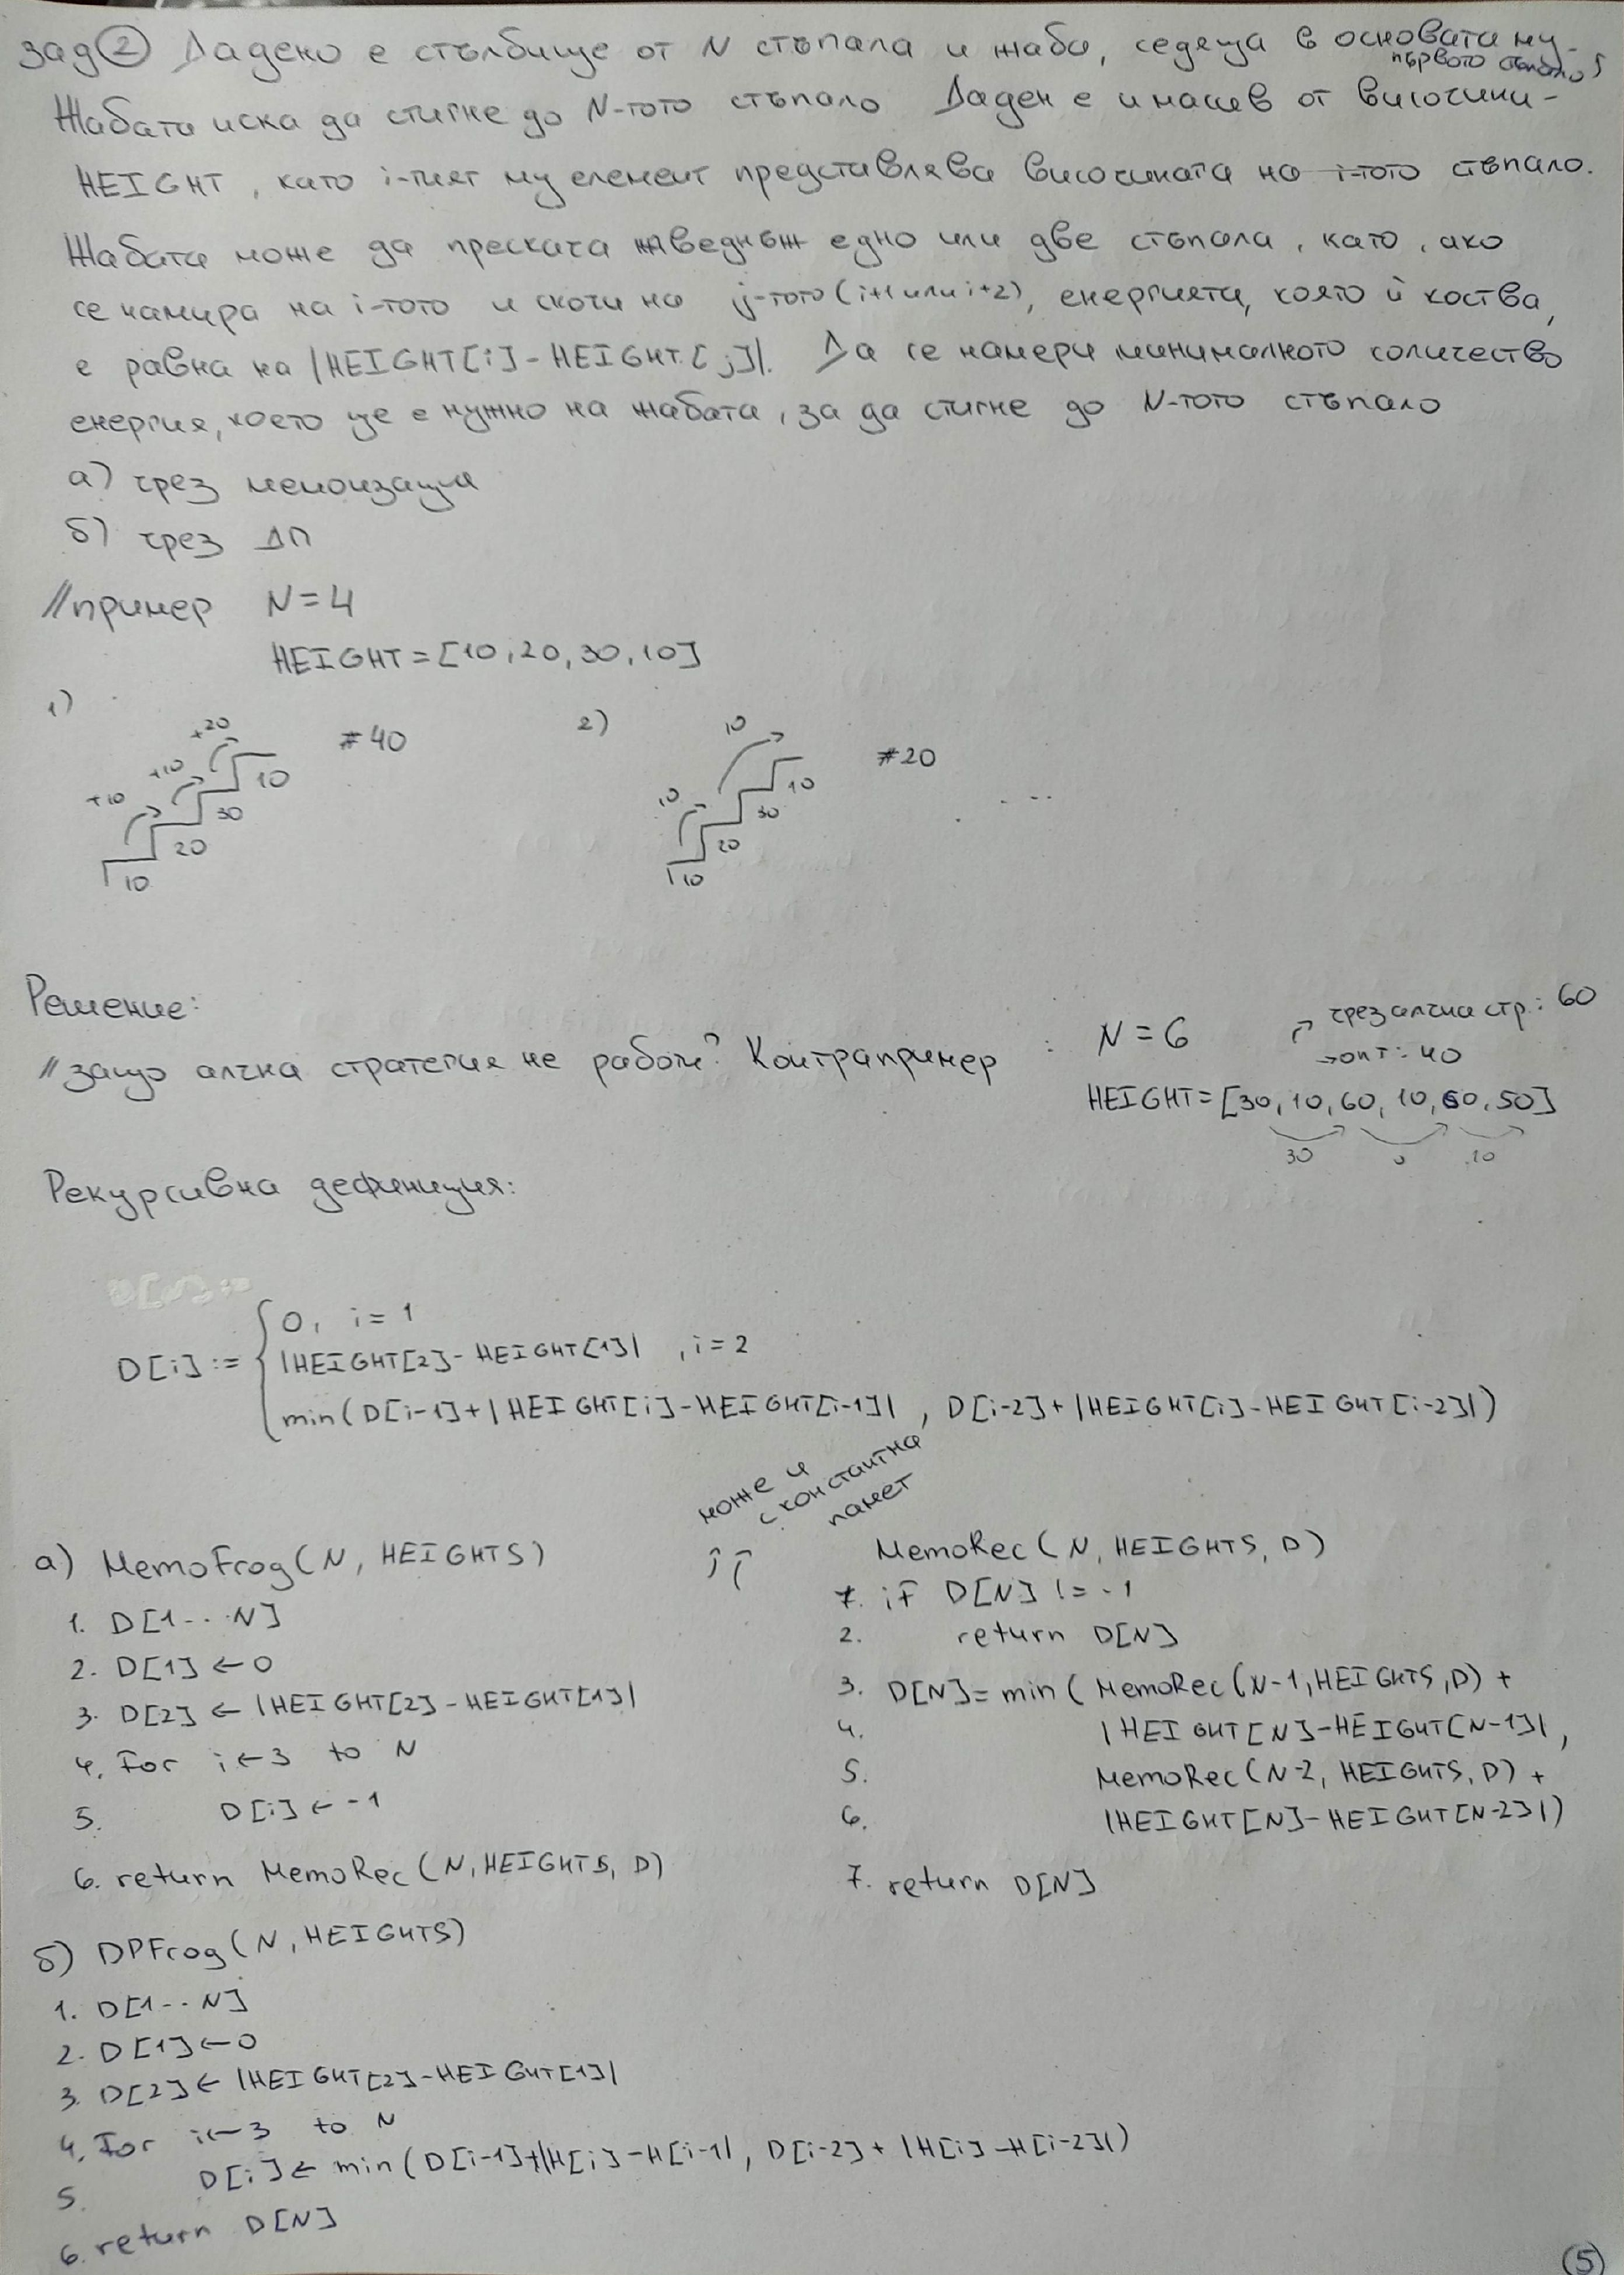 зад ② Дадено е стълбище от N стъпала и жаба, седяща в основата му.
първото стъпало
Жабата иска да стигне до N-тото стъпало Даден е и масив от височини-
HEIGHT, като i-тият му елемент представлява височината на i-тото стъпало.
Жабата може да прескача наведнъж едно или две стъпала, като, ако
се намира на i-тото и скочи на j-тото (i+1 или i+2), енергията, която ѝ коства,
е равна на |HEIGHT[i]-HEIGHT[j]|. Да се намери минималното количество
енергия, което ще е нужно на жабата, за да стигне до N-тото стъпало
а) чрез мемоизация
б) чрез ДП
//пример N=4
HEIGHT=[10,20,30,10]
1) +10 +10 +20 #40
10 20 30 10
2) 10 10 #20
10 20 30 10
...
Решение:
//защо алчна стратегия не работи? Контрапример : N=6
→ чрез алчна стр.: 60
→ опт: 40
HEIGHT=[30,10,60,10,60,50]
30 0 10
Рекурсивна дефиниция:
D[i] := { 0, i=1
|HEIGHT[2]-HEIGHT[1]| , i=2
min(D[i-1]+|HEIGHT[i]-HEIGHT[i-1]| , D[i-2]+|HEIGHT[i]-HEIGHT[i-2]|)
може и
с константна
памет
а) MemoFrog(N, HEIGHTS)
1. D[1...N]
2. D[1] ← 0
3. D[2] ← |HEIGHT[2]-HEIGHT[1]|
4. For i←3 to N
5. D[i] ← -1
6. return MemoRec(N, HEIGHTS, D)
MemoRec(N, HEIGHTS, D)
1. if D[N] != -1
2. return D[N]
3. D[N]= min(MemoRec(N-1,HEIGHTS,D) +
4. |HEIGHT[N]-HEIGHT[N-1]|,
5. MemoRec(N-2, HEIGHTS, D) +
6. |HEIGHT[N]-HEIGHT[N-2]|)
7. return D[N]
б) DPFrog(N, HEIGHTS)
1. D[1...N]
2. D[1] ← 0
3. D[2] ← |HEIGHT[2]-HEIGHT[1]|
4. For i←3 to N
5. D[i] ← min(D[i-1]+|H[i]-H[i-1]|, D[i-2]+|H[i]-H[i-2]|)
6. return D[N]
⑤